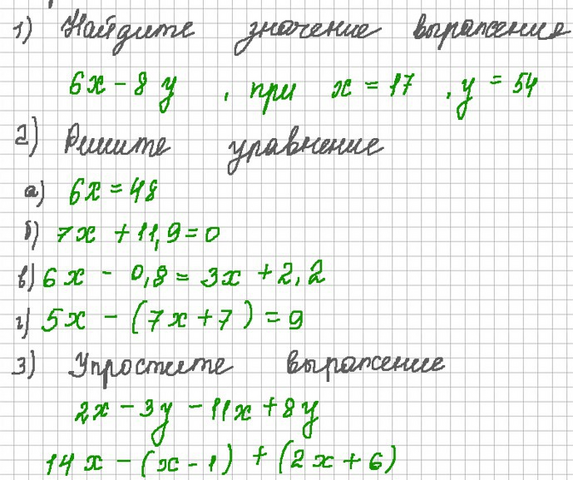 1) Найдите значение выражения
6x - 8y , при x = 17 , y = 54
2) Решите уравнение
а) 6x = 48
б) 7x + 11,9 = 0
в) 6x - 0,8 = 3x + 2,2
г) 5x - (7x + 7) = 9
3) Упростите выражение
2x - 3y - 11x + 8y
14x - (x - 1) + (2x + 6)